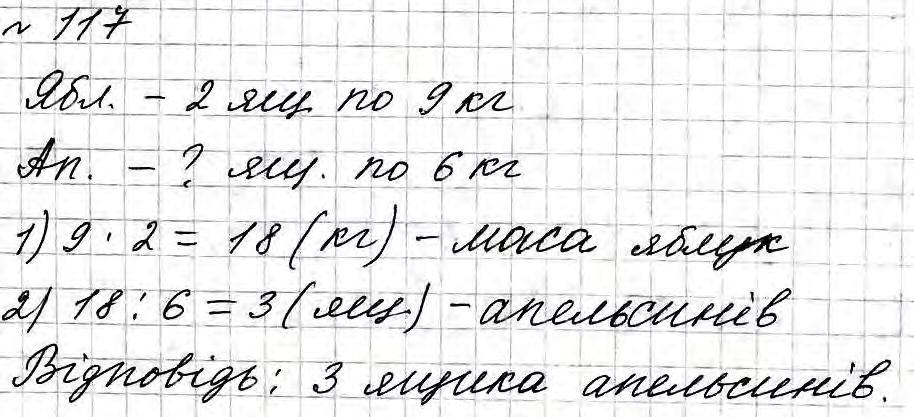 № 117
Ябл. – 2 ящ по 9 кг
Ап. – ? ящ. по 6 кг
1) 9 · 2 = 18 (кг) – маса яблук
2) 18 : 6 = 3 (ящ.) – апельсинів
Відповідь: 3 ящика апельсинів.